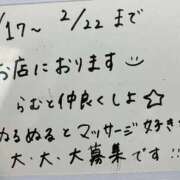 /17〜 2/22 まで
お店におります
らむと仲良くしよ☆
ぬるぬるとマッサージ好き
大・大・大募集です!!